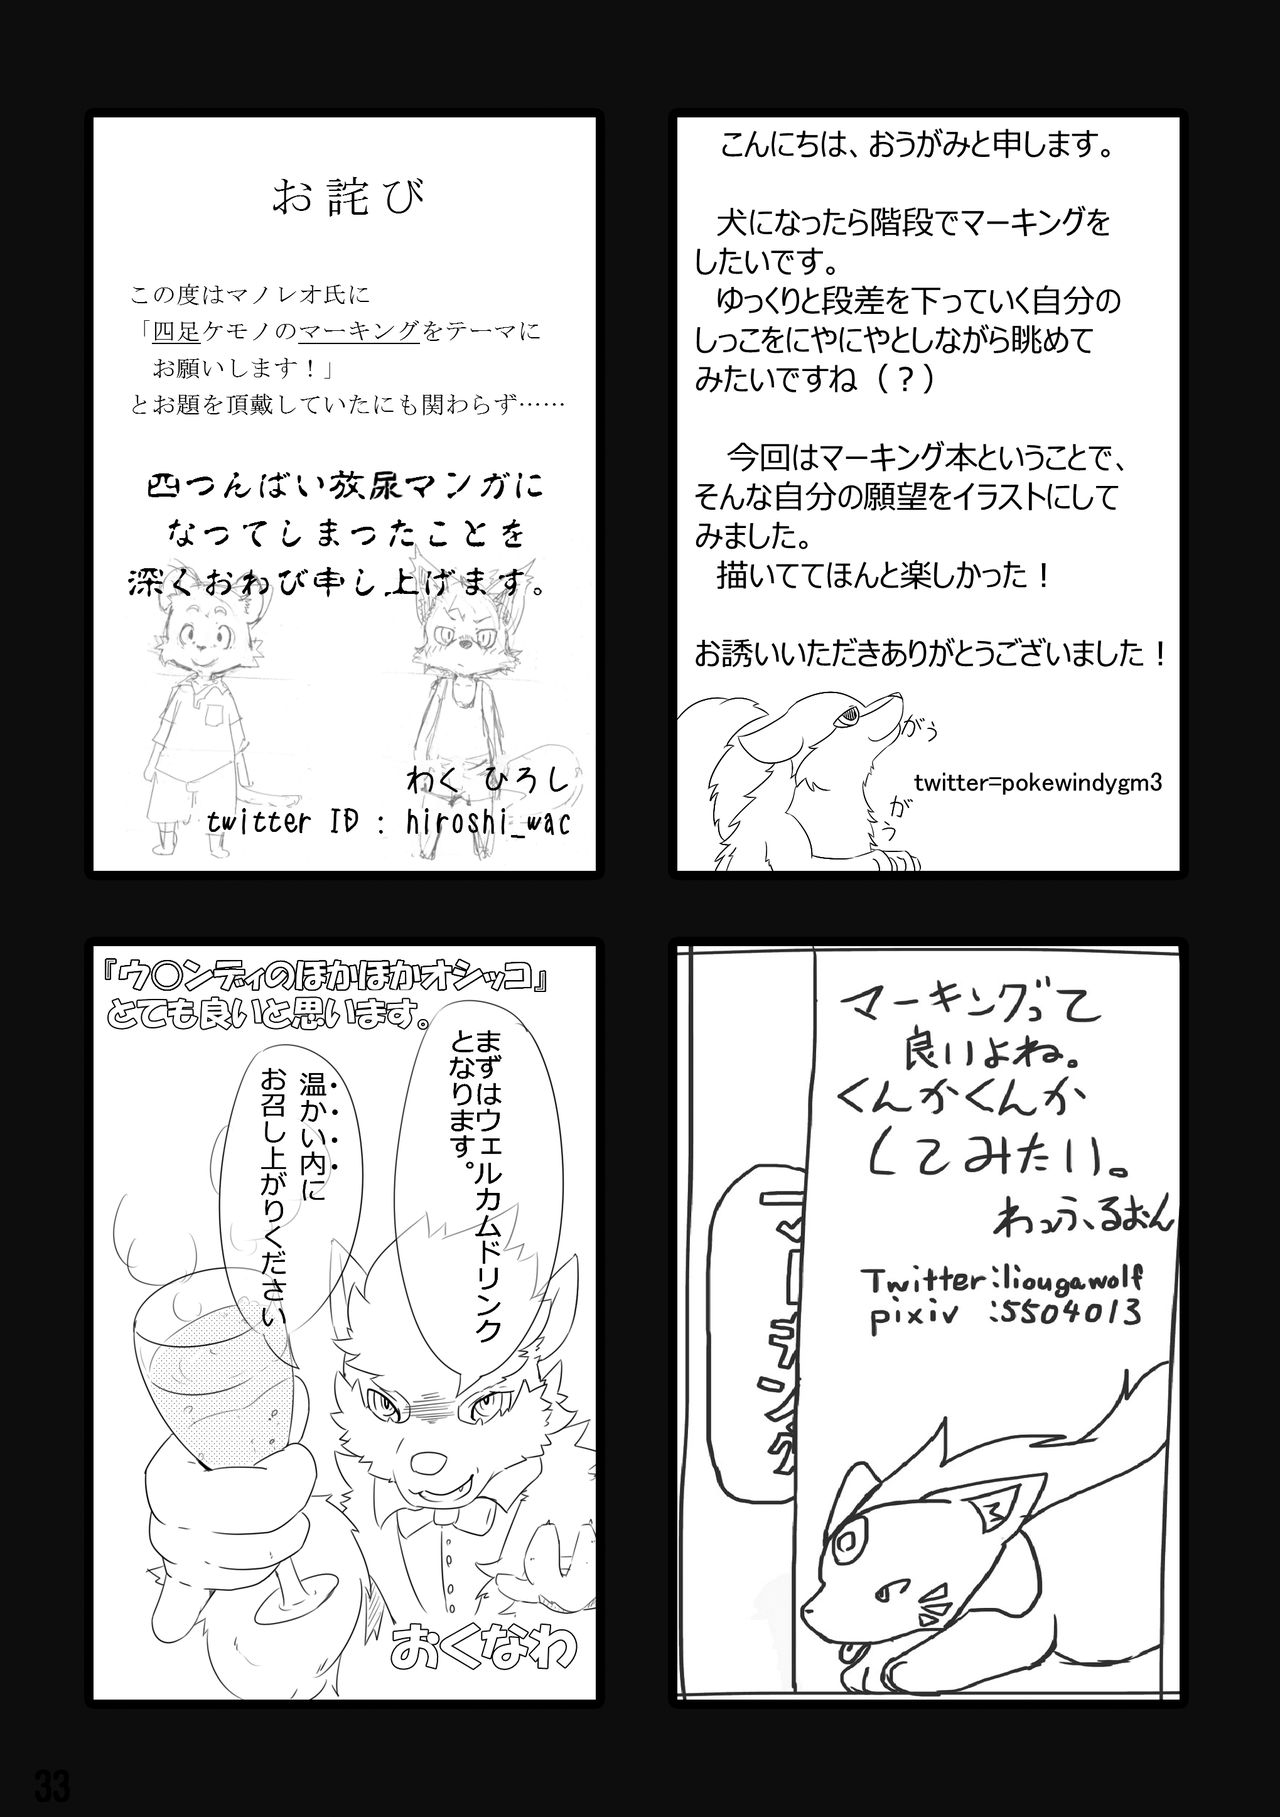 お詫び
この度はマノレオ氏に
「四足ケモノのマーキングをテーマに
お願いします！」
とお題を頂戴していたにも関わらず……
四つんばい放尿マンガに
なってしまったことを
深くおわび申し上げます。
わく ひろし
twitter ID : hiroshi_wac
こんにちは、おうがみと申します。
犬になったら階段でマーキングを
したいです。
ゆっくりと段差を下っていく自分の
しっこをにやにやとしながら眺めて
みたいですね（？）
今回はマーキング本ということで、
そんな自分の願望をイラストにして
みました。
描いててほんと楽しかった！
お誘いいただきありがとうございました！
がぅ
がう
twitter=pokewindygm3
『ウ〇ンディのほかほかオシッコ』
とても良いと思います。
まずはウェルカムドリンク
となります。
温かい内に
お召し上がりください
おくなわ
マーキングって
良いよね。
くんかくんか
してみたい。
わっふ、るおん
Twitter:liougawolf
pixiv :5504013
マーキング
33